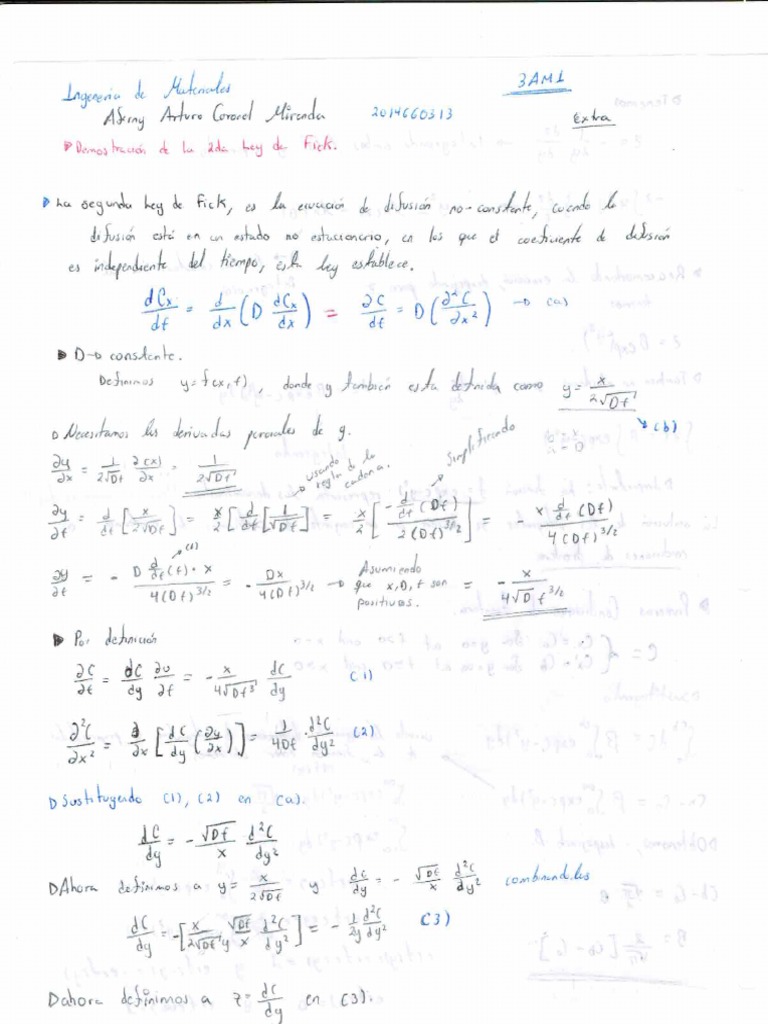 3AM1
Ingeniería de Materiales
Aferny Arturo Coronel Miranda 2014660313
Extra
Demostración de la 2da Ley de Fick.
La segunda Ley de Fick, es la ecuación de difusión no-constante, cuando la
difusión está en un estado no estacionario, en los que el coeficiente de difusión
es independiente del tiempo, esta ley establece.
dCx/dt = d/dx (D dCx/dx) = ∂C/dt = D(∂²C/∂x²) → (a)
D→ constante.
Definimos y=f(x,t), donde y también esta definida como y= x/2√Dt
→(b)
Necesitamos las derivadas parciales de y.
∂y/∂x = 1/2√Dt ∂(x)/∂x = 1/2√Dt
usando regla de la cadena.
simplificando
∂y/∂t = d/dt [x/2√Dt] = x/2 [d/dt [1/√Dt] = x/2 [-d/dt (Dt)/2(Dt)^3/2] = x d/dt (Dt)/4(Dt)^3/2
∂y/∂t = - D d/dt (t)·x/4(Dt)^3/2 = - Dx/4(Dt)^3/2 → Asumiendo que x, D, t son positivos. = - x/4√D t^3/2
Por definición
∂C/∂t = dC/dy ∂u/∂t = - x/4√Dt³ dC/dy (1)
∂²C/∂x² = ∂/∂x [dC/dy (∂y/∂x)] = 1/4Dt · d²C/dy² (2)
Sustituyendo (1), (2) en (a).
dC/dy = - √Dt/x · d²C/dy²
Ahora definimos a y= x/2√Dt y dC/dy = - √Dt/x d²C/dy² combinandolas
dC/dy = -[x/2√Dt y √Dt/x d²C/dy²] = - 1/2y d²C/dy² (3)
ahora definimos a z= dC/dy en (3).